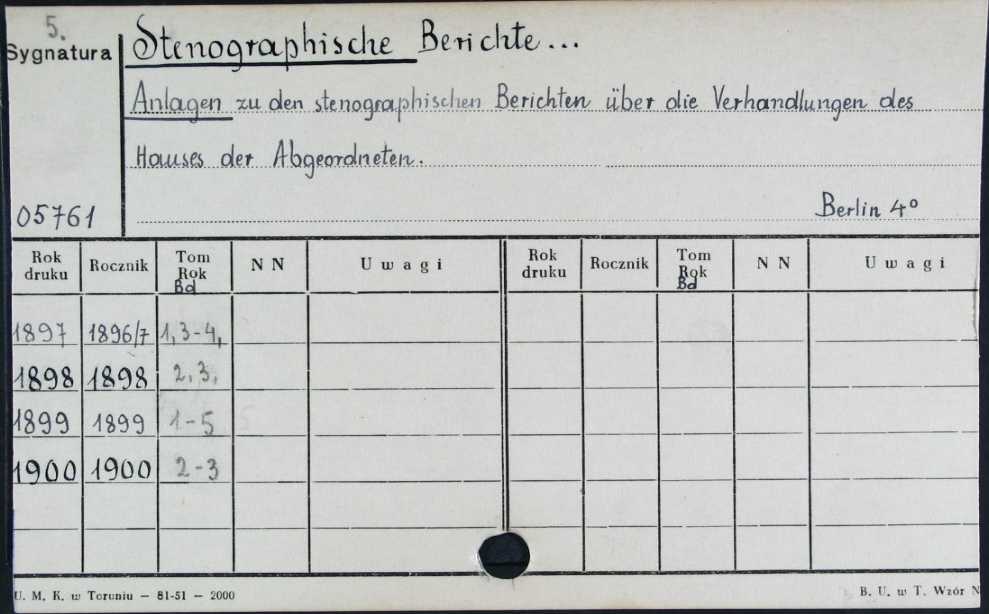 5.
Sygnatura
Stenographische Berichte...
Anlagen zu den stenographischen Berichten über die Verhandlungen des
Hauses der Abgeordneten.
05761
Berlin 4°
Rok druku Rocznik Tom Rok Bd N N Uwagi Rok druku Rocznik Tom Rok Bd N N Uwagi
1897 1896/7 1,3-4,
1898 1898 2,3,
1899 1899 1-5
1900 1900 2-3
U. M. K. w Toruniu — 81-51 — 2000
B. U. w T. Wzór N